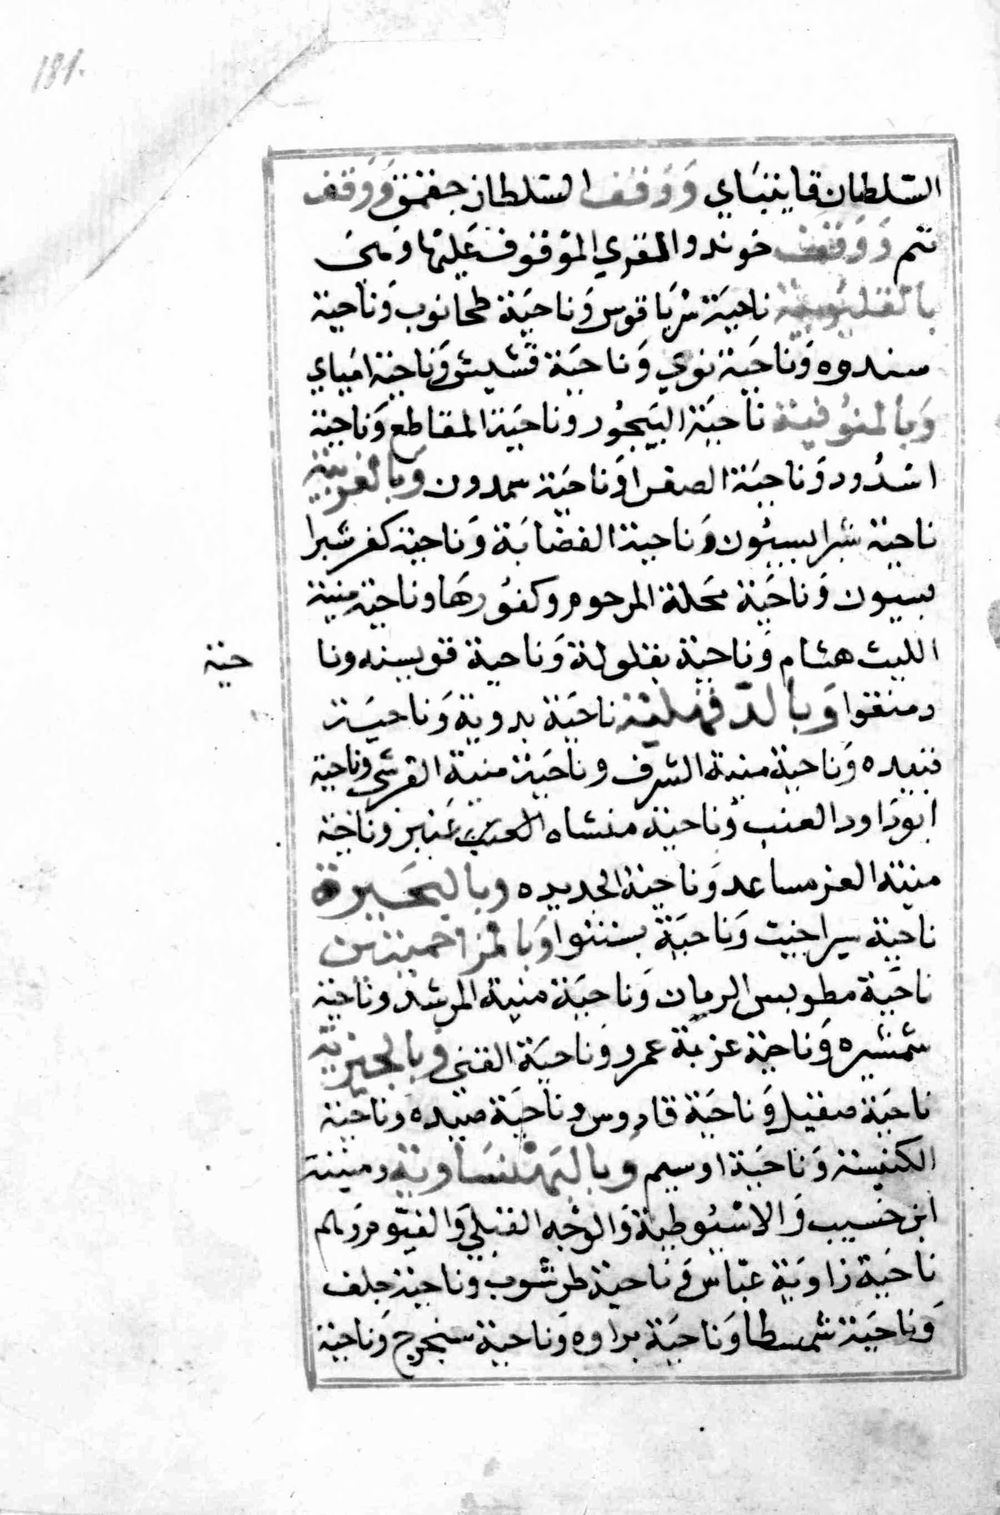 181.
السلطان قايتباي ووقف السلطان جقمق ووقف
تتم ووقف خوند والمقري الموقوف عليها ومن
بالقليوبية ناحية سرياقوس وناحية طحانوب وناحية
سندوه وناحية نوي وناحية قشيش وناحية امياي
وبالمنوفية ناحية البيجور وناحية المقاطع وناحية
اشدود وناحية الصفرا وناحية سمدون وبالغربية
ناحية شبرا بسيون وناحية القضابة وناحية كفر شبرا
بسيون وناحية محلة المرحوم وكفورها وناحية منية
الليث هشام وناحية بقلولة وناحية قويسنه ونا
حية
دمنقوا وبالدقهلية ناحية بدوية وناحية
ناحية منية الشرف وناحية منية القرشي وناحية
ابو داود العنب وناحية منشاه عنبر وناحية
منية العز مساعد وناحية الجديده وبالبحيرة
ناحية سيراجيت وناحية بسنتوا وبالمزاحميتين
ناحية مطوبس الرمان وناحية منية المرشد وناحية
شمشيره وناحية عزبة عمرو وناحية القنى وبالجيزية
ناحية صقيل وناحية قادوس وناحية صيده وناحية
الكنيسة وناحية اوسيم وبالبهنساوية ومنية
ابن خسيب والاسيوطية والوجه القبلي والفيوم
ناحية زاوية عباس وناحية طرشوب وناحية جلف
وناحية شمسطا وناحية براوه وناحية سنجرج وناحية